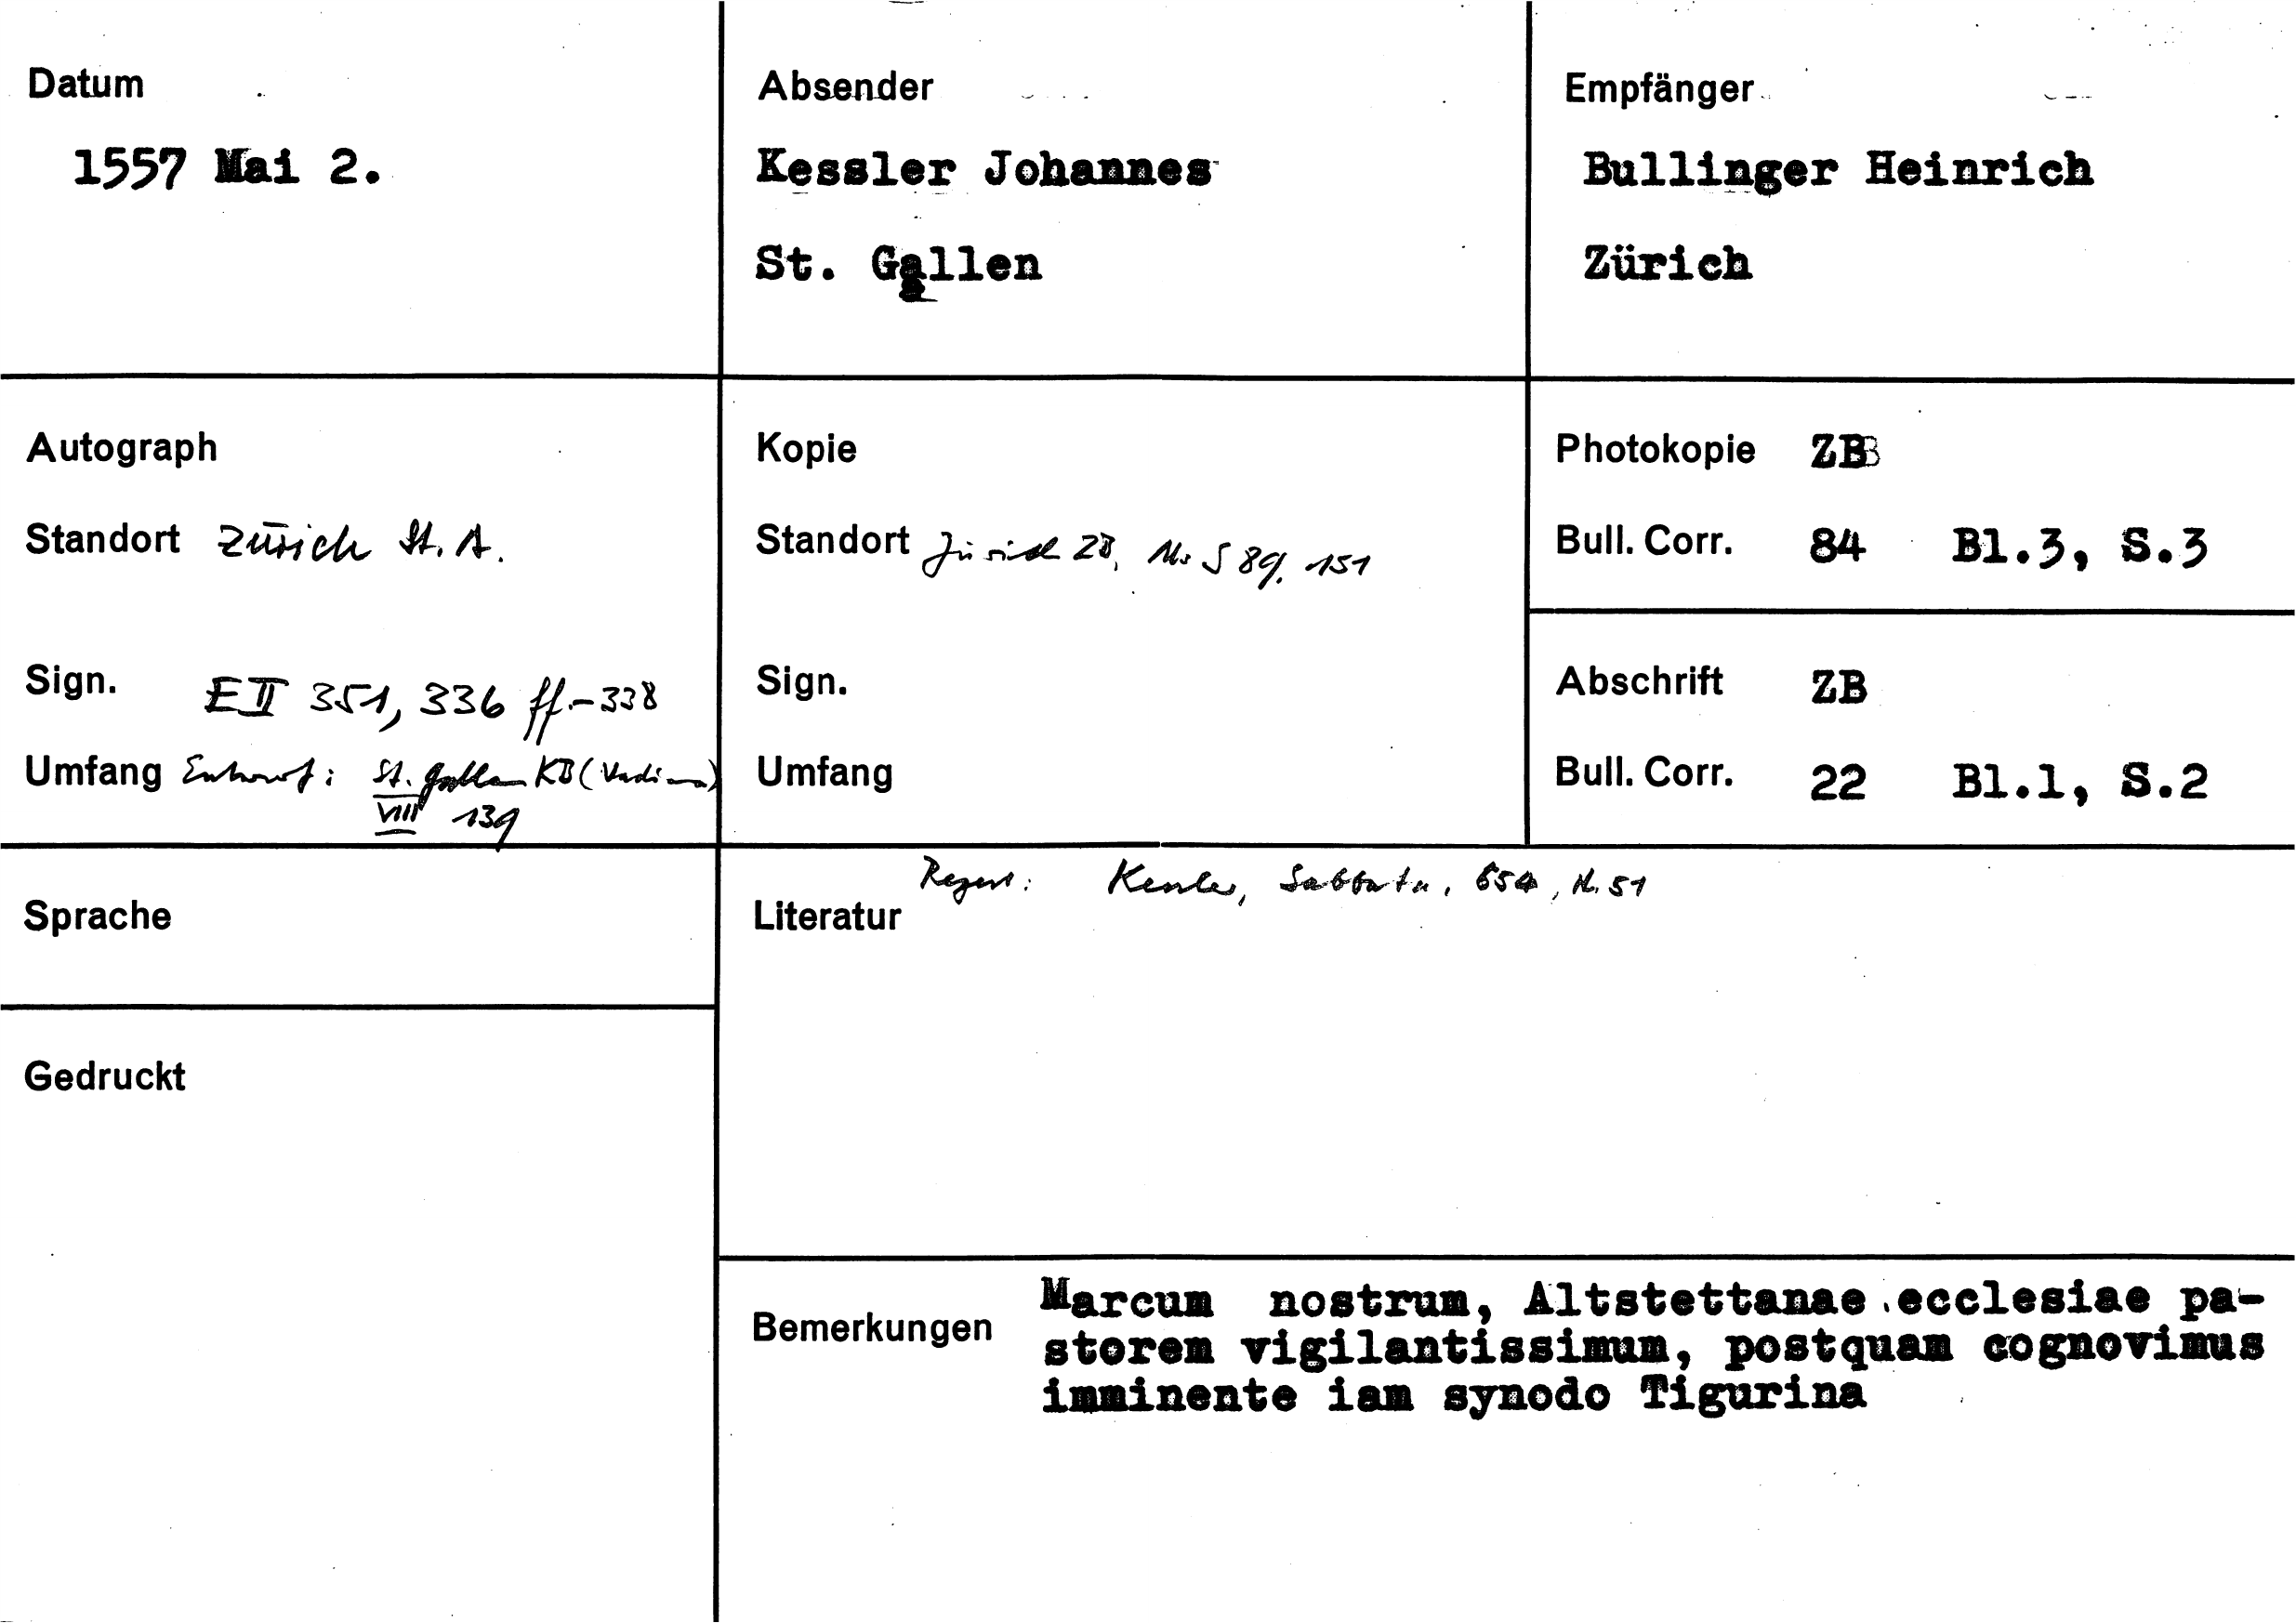 Datum
1557 Mai 2.
Absender
Kessler Johannes
St. Gallen
Empfänger
Bullinger Heinrich
Zürich
Autograph
Standort Zürich St. A.
Sign. E II 351, 336 ff.-338
Umfang Entwurf: St. Gallen KB (Vadiana)
VIII 139
Kopie
Standort Zürich ZB, Ms S 89, 151
Sign.
Umfang
Photokopie ZB
Bull. Corr. 84 Bl.3, S.3
Abschrift ZB
Bull. Corr. 22 Bl.1, S.2
Sprache
Gedruckt
Regest: Kessler, Sabbata, 654, N. 51
Literatur
Bemerkungen
Marcum nostrum, Altstettanae ecclesiae pa-
storem vigilantissimum, postquam cognovimus
imminente iam synodo Tigurina